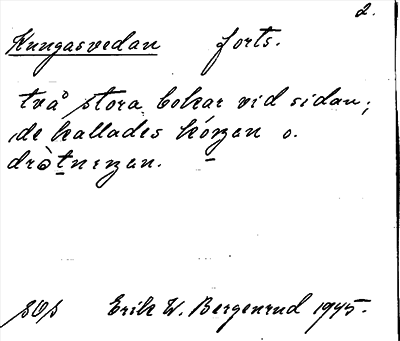 2.
Kungasvedan forts.
två stora bokar vid sidan;
de kallades kóŋan o.
dròtnıŋan.
SOS Erik W. Bergenrud 1945.